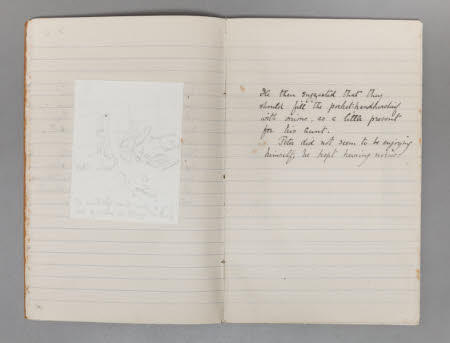 He then suggested that they
should fill the pocket-handkerchief
with onions, as a little present
for his aunt.
Peter did not seem to be enjoying
himself; he kept hearing noises.